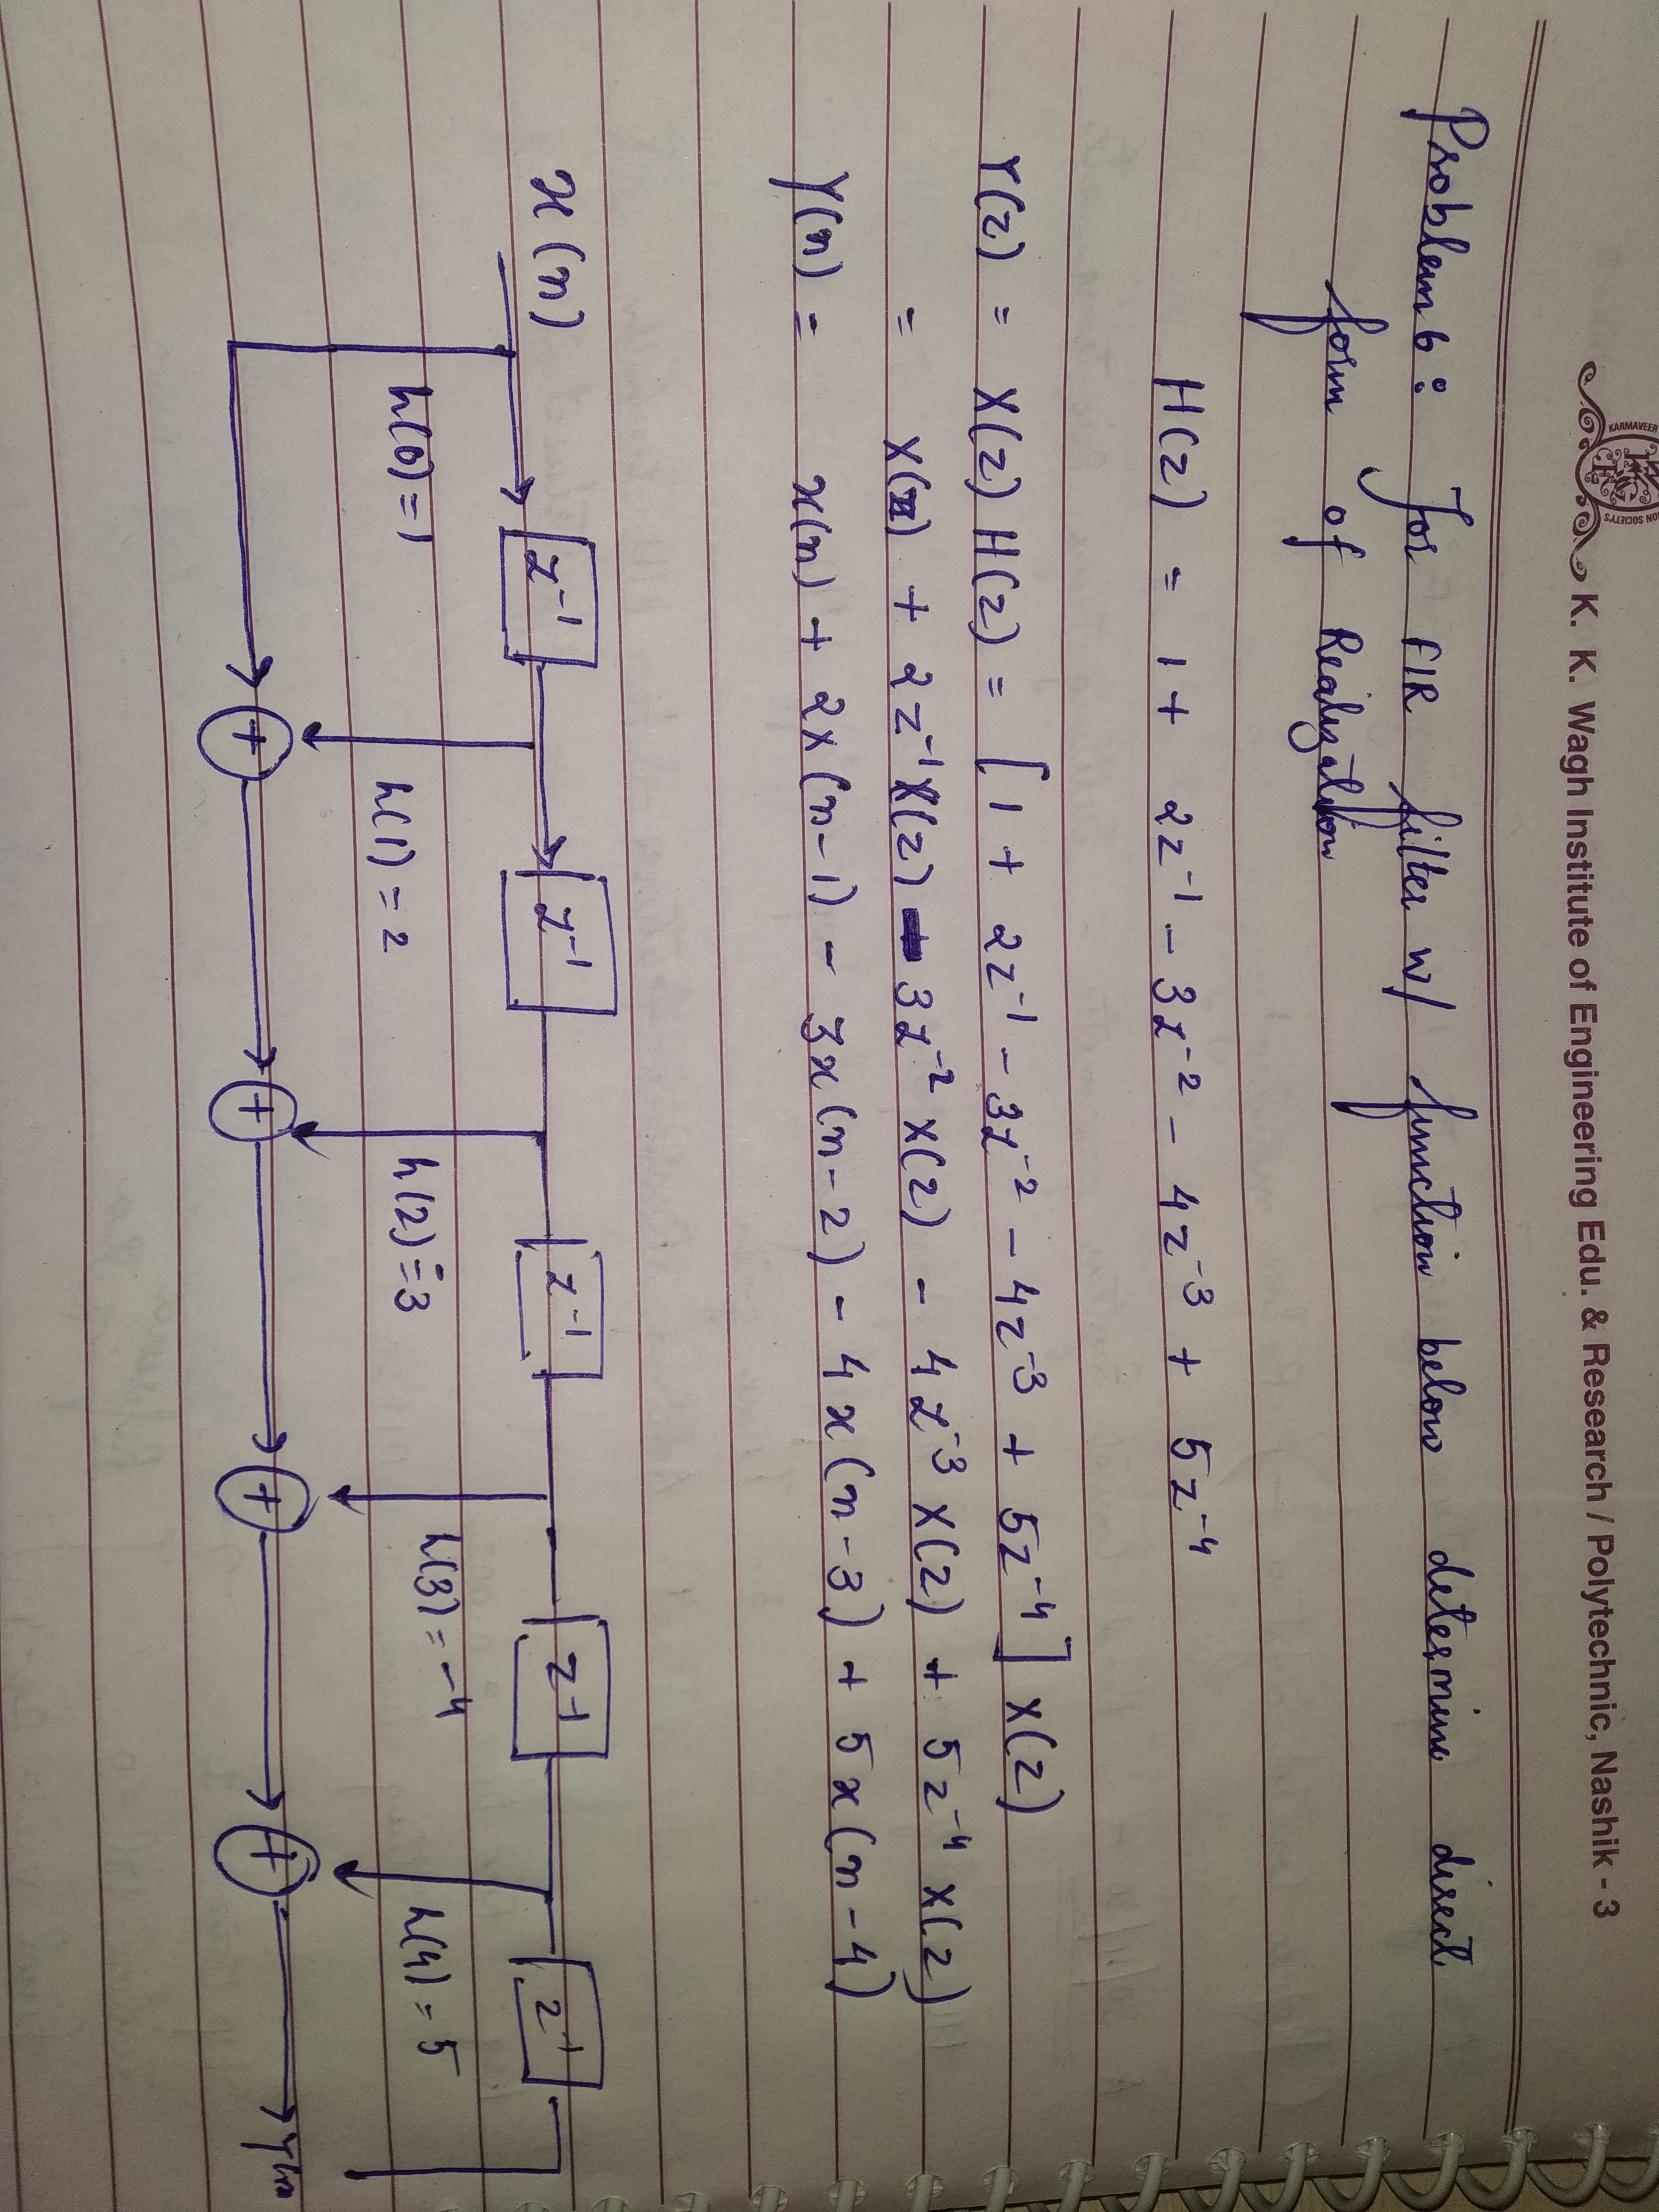 K. K. Wagh Institute of Engineering Edu. & Research / Polytechnic, Nashik - 3
Problem 6 : For FIR filter w/ function below determine direct
form of Realization
H(z) = 1 + 2z⁻¹ - 3z⁻² - 4z⁻³ + 5z⁻⁴
Y(z) = X(z) H(z) = [1 + 2z⁻¹ - 3z⁻² - 4z⁻³ + 5z⁻⁴] X(z)
= X(z) + 2z⁻¹X(z) - 3z⁻² X(z) - 4z⁻³ X(z) + 5z⁻⁴ X(z)
Y(n) = x(n) + 2x(n-1) - 3x(n-2) - 4x(n-3) + 5x(n-4)
x(n)
z⁻¹ z⁻¹ z⁻¹ z⁻¹ z⁻¹
h(0)=1 h(1)=2 h(2)=-3 h(3)=-4 h(4)=5
+ + + + Y(n)